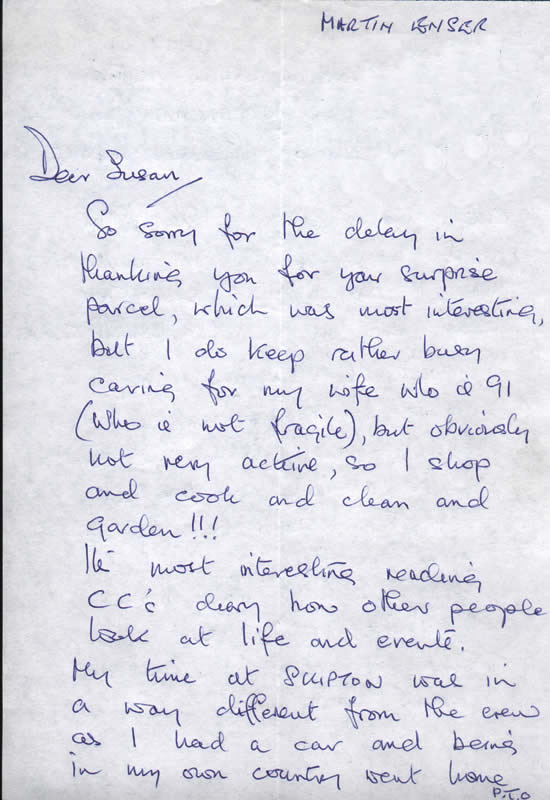 MARTIN ENSER
Dear Susan
So sorry for the delay in
thanking you for your surprise
parcel, which was most interesting,
but I do keep rather busy
caring for my wife who is 91
(who is not fragile), but obviously
not very active, so I shop
and cook and clean and
garden!!!
It's most interesting reading
CC's diary how other people
look at life and events.
My time at SKIPTON was in
a way different from the crew
as I had a car and being
in my own country went home
P.T.O